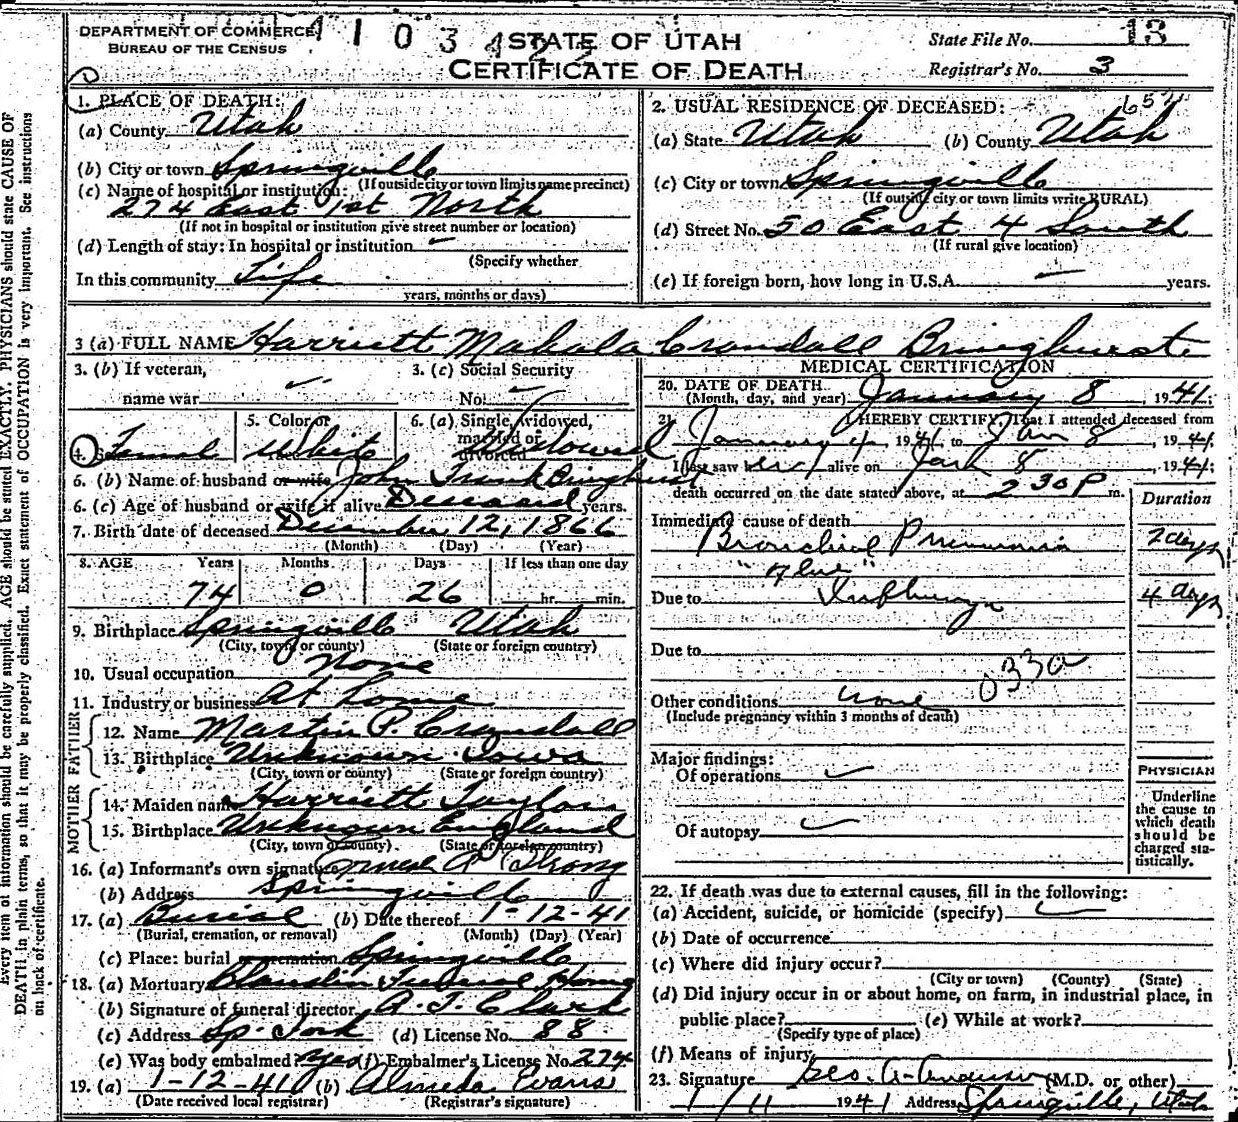 DEPARTMENT OF COMMERCE
BUREAU OF THE CENSUS
STATE OF UTAH
CERTIFICATE OF DEATH
State File No. 13
Registrar's No. 3
1. PLACE OF DEATH:
(a) County Utah
(b) City or town Springville
(If outside city or town limits name precinct)
(c) Name of hospital or institution:
274 East 1st North
(If not in hospital or institution give street number or location)
(d) Length of stay: In hospital or institution
(Specify whether
In this community Life
years, months or days)
2. USUAL RESIDENCE OF DECEASED:
(a) State Utah (b) County Utah
(c) City or town Springville
(If outside city or town limits write RURAL)
(d) Street No. 50 East 4 South
(If rural give location)
(e) If foreign born, how long in U.S.A. years.
3 (a) FULL NAME Harriett Mahala Crandall Bringhurst
3. (b) If veteran,
name war
3. (c) Social Security
No.
4. Sex Female
5. Color or White
6. (a) Single, widowed, married or divorced Widowed
6. (b) Name of husband or wife John Frank Bringhurst
6. (c) Age of husband or wife if alive Deceased years.
7. Birth date of deceased December 12, 1866
(Month) (Day) (Year)
8. AGE Years Months Days If less than one day
74 0 26 hr. min.
9. Birthplace Springville Utah
(City, town or county) (State or foreign country)
10. Usual occupation None
11. Industry or business At home
FATHER
12. Name Martin P. Crandall
13. Birthplace Unknown Iowa
(City, town or county) (State or foreign country)
MOTHER
14. Maiden name Harriett Taylor
15. Birthplace Unknown England
(City, town or county) (State or foreign country)
16. (a) Informant's own signature Strong
(b) Address Springville
17. (a) Burial (b) Date thereof 1-12-41
(Burial, cremation, or removal) (Month) (Day) (Year)
(c) Place: burial or cremation Springville
18. (a) Mortuary Funeral Home
(b) Signature of funeral director A. J. Clark
(c) Address Sp. Fork (d) License No. 88
(e) Was body embalmed? Yes (f) Embalmer's License No. 274
19. (a) 1-12-41 (b) Almeda Evans
(Date received local registrar) (Registrar's signature)
MEDICAL CERTIFICATION
20. DATE OF DEATH January 8, 1941;
(Month, day, and year)
21. I HEREBY CERTIFY, That I attended deceased from
January 4, 1941 to Jan 8, 1941
I last saw her alive on Jan 8, 1941;
death occurred on the date stated above, at 2 30 P m.
Duration
Immediate cause of death
Bronchial Pneumonia 2 days
"Flue"
Due to Influenza 4 days
Due to
033a
Other conditions none
(Include pregnancy within 3 months of death)
Major findings:
Of operations
Of autopsy
PHYSICIAN
Underline
the cause to
which death
should be
charged sta-
tistically.
22. If death was due to external causes, fill in the following:
(a) Accident, suicide, or homicide (specify)
(b) Date of occurrence
(c) Where did injury occur?
(City or town) (County) (State)
(d) Did injury occur in or about home, on farm, in industrial place, in
public place? (e) While at work?
(Specify type of place)
(f) Means of injury
23. Signature Geo. A. Anderson (M.D. or other)
1/11 1941 Address Springville, Utah
Every item of information should be carefully supplied. AGE should be stated EXACTLY. PHYSICIANS should state CAUSE OF
DEATH in plain terms, so that it may be properly classified. Exact statement of OCCUPATION is very important. See instructions
on back of certificate.